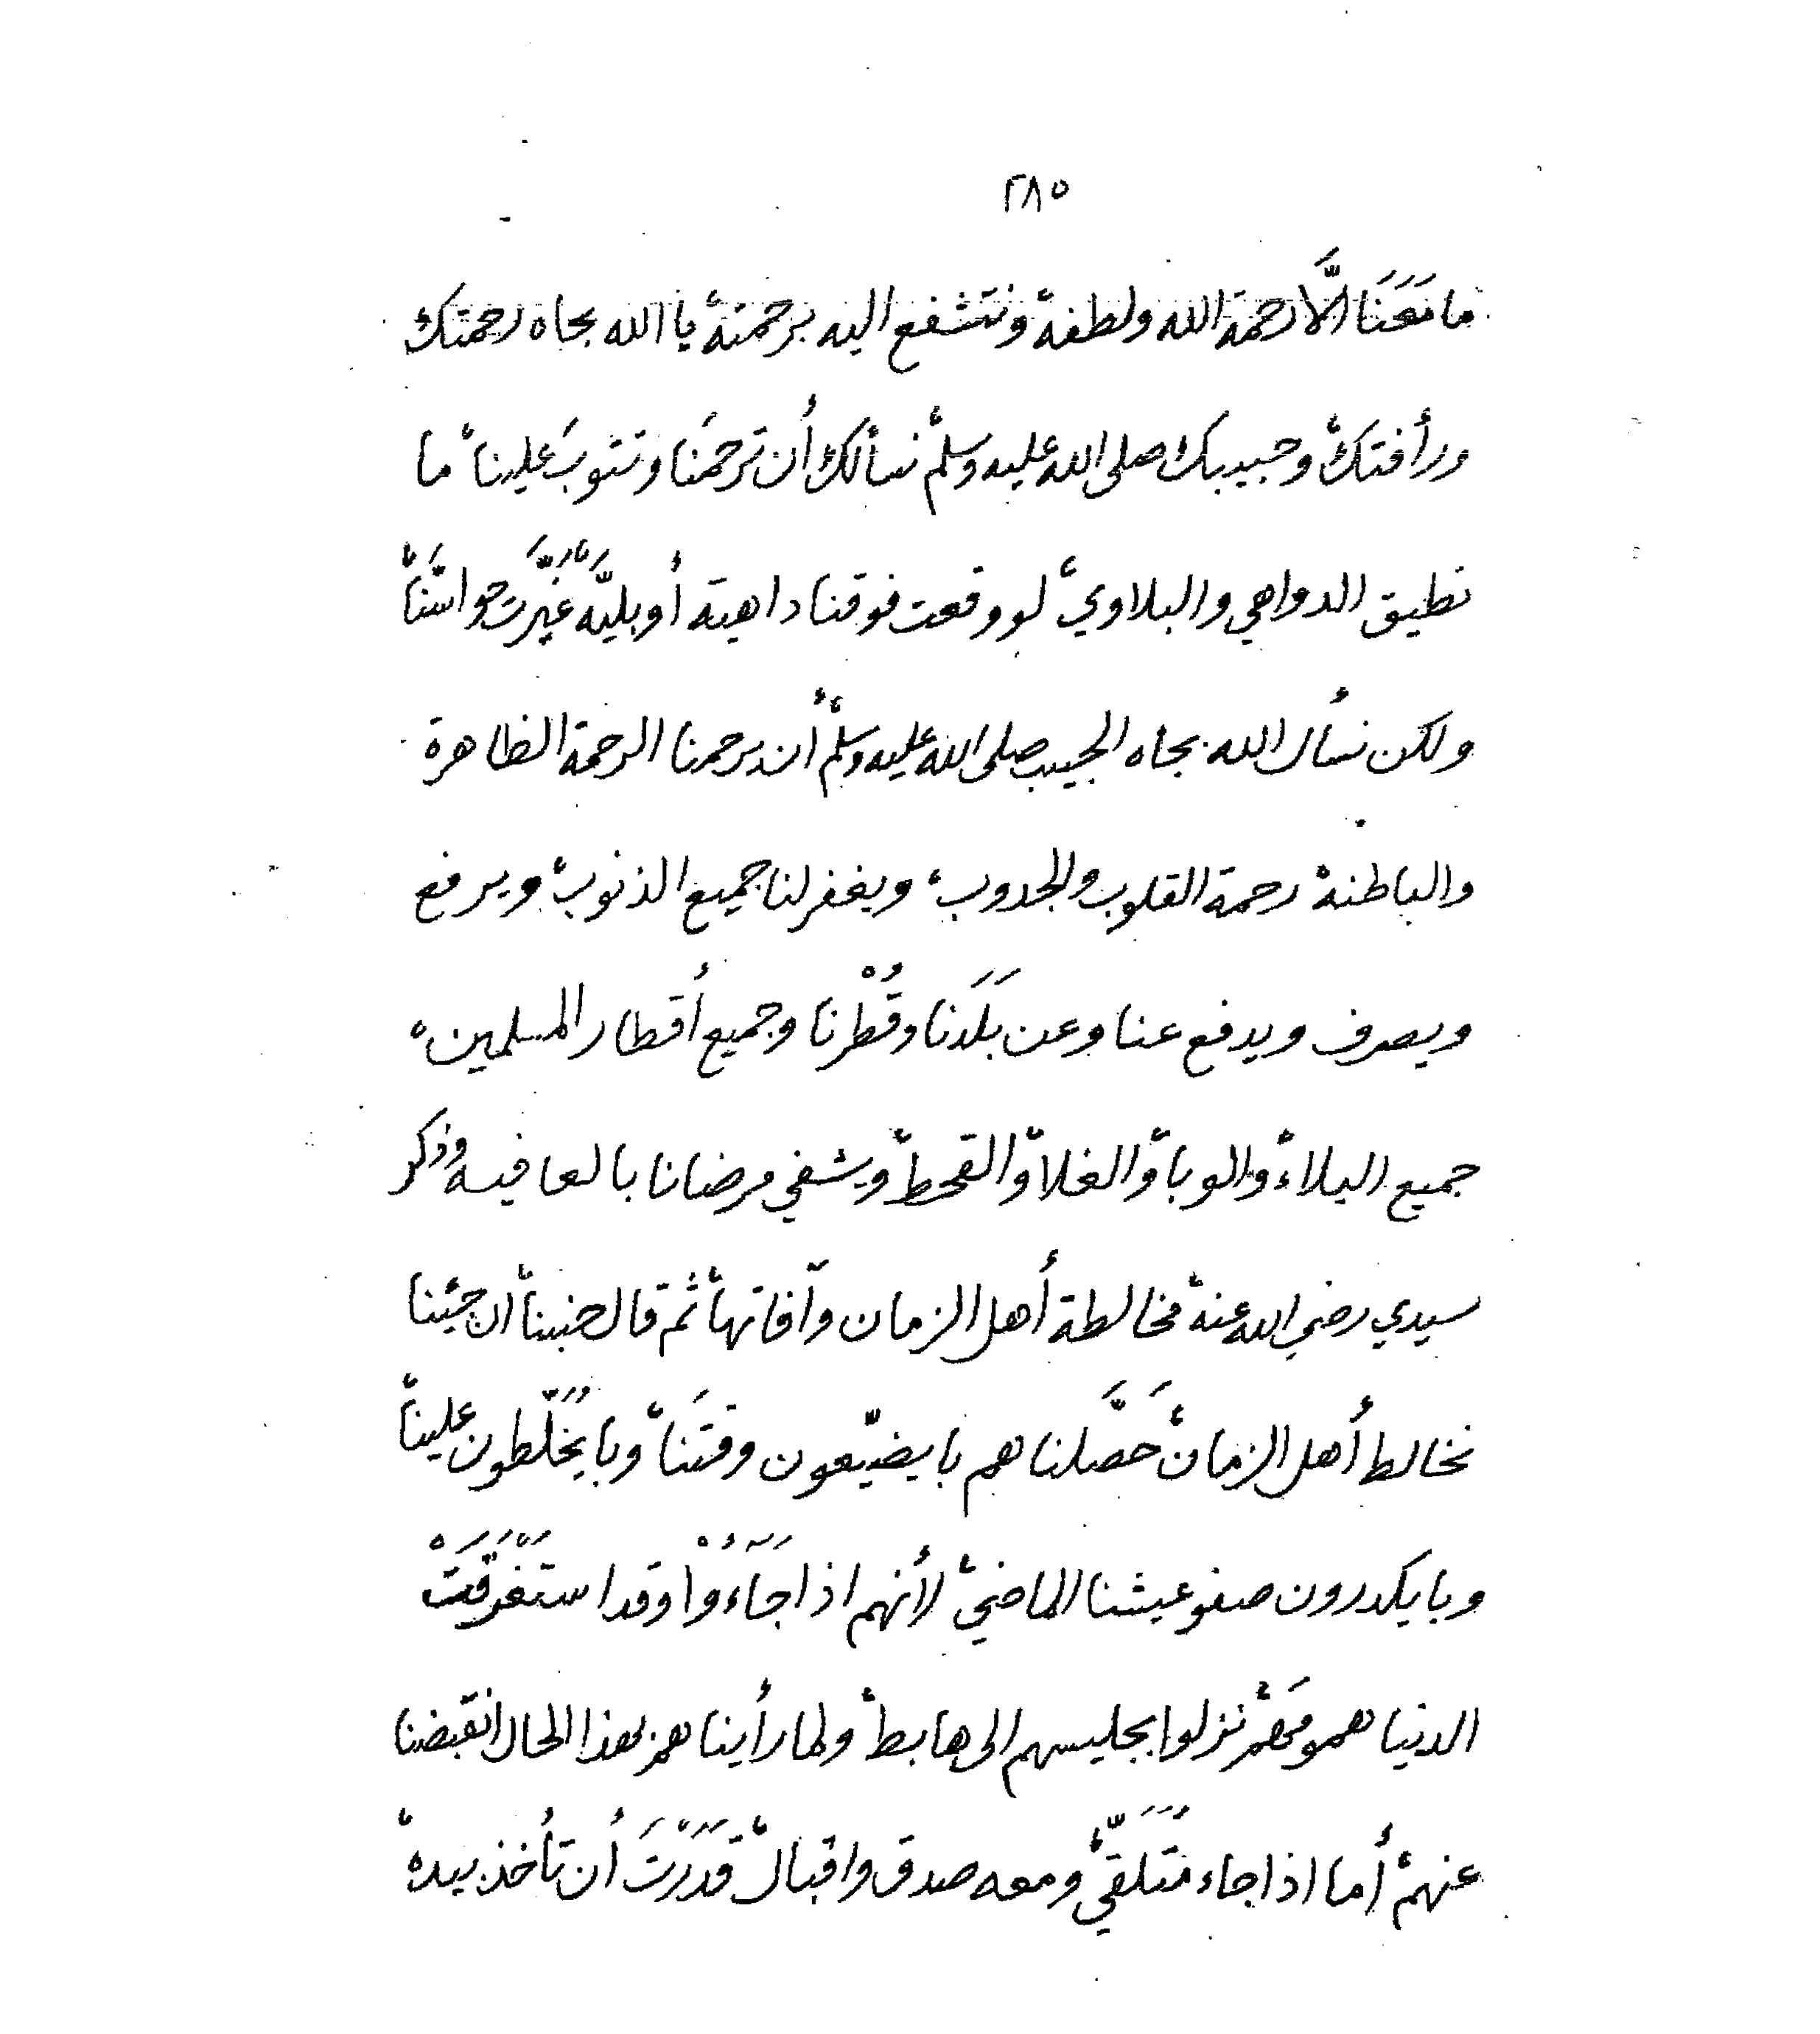 ٢٨٥
ما مَعَنَا الَّا رحمة الله ولطفه، ونتشفع اليه برحمته، يا الله بجاه رحمتك
ورأفتك، وحبيبك صلى الله عليه وسلم، نسألك أن ترحمَنا وتتوبَ علينا، ما
نطيق الدواهي والبلاوي، لو وقعت فوقنا داهية أو بليّه غَيَّرَت حواسَّنَا،
ولكن نسأل الله بجاه الحبيب صلى الله عليه وسلم، أن يرحمنا الرحمة الظاهرة
والباطنة، رحمة القلوب والجدوب، ويغفر لنا جميع الذنوب، ويرفع
ويصرف ويدفع عنا وعن بَلَدنا وقُطْرنا وجميع أقطار المسلمين،
جميع البلاء، والوبا، والغلا، والقحط، ويشفي مرضانا بالعافيه، وذكر
سيدي رضي الله عنه، مخالطة أهل الزمان وآفاتها، ثم قال حنبنا، ان جئينا
نخالط أهل الزمان، حَصَّلناهم بايضيّعون وقتَنا، وبايخُلّطون علينا،
وبايكدرون صفو عيشنا الماضي، لأنهم اذا جَآءُوْا وقد استَغْرَقَتْ
الدنيا همومَهم، نزلوا بجليسهم الى هابط، ولما رأيناهم بهذا الحال انقبضنا
عنهم، أما اذا جاء مُتَلَقّي، ومعه صدق واقبال، قَدَرْتَ أن تأخذ بيده،